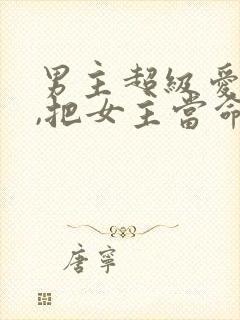 男主超級愛
,把女主當命
唐寧